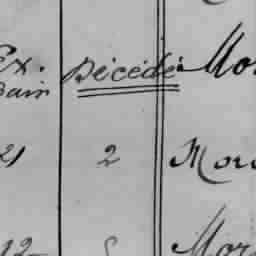 Ex. Décédé Mor
Bain
21 2 Mor
12 Mor